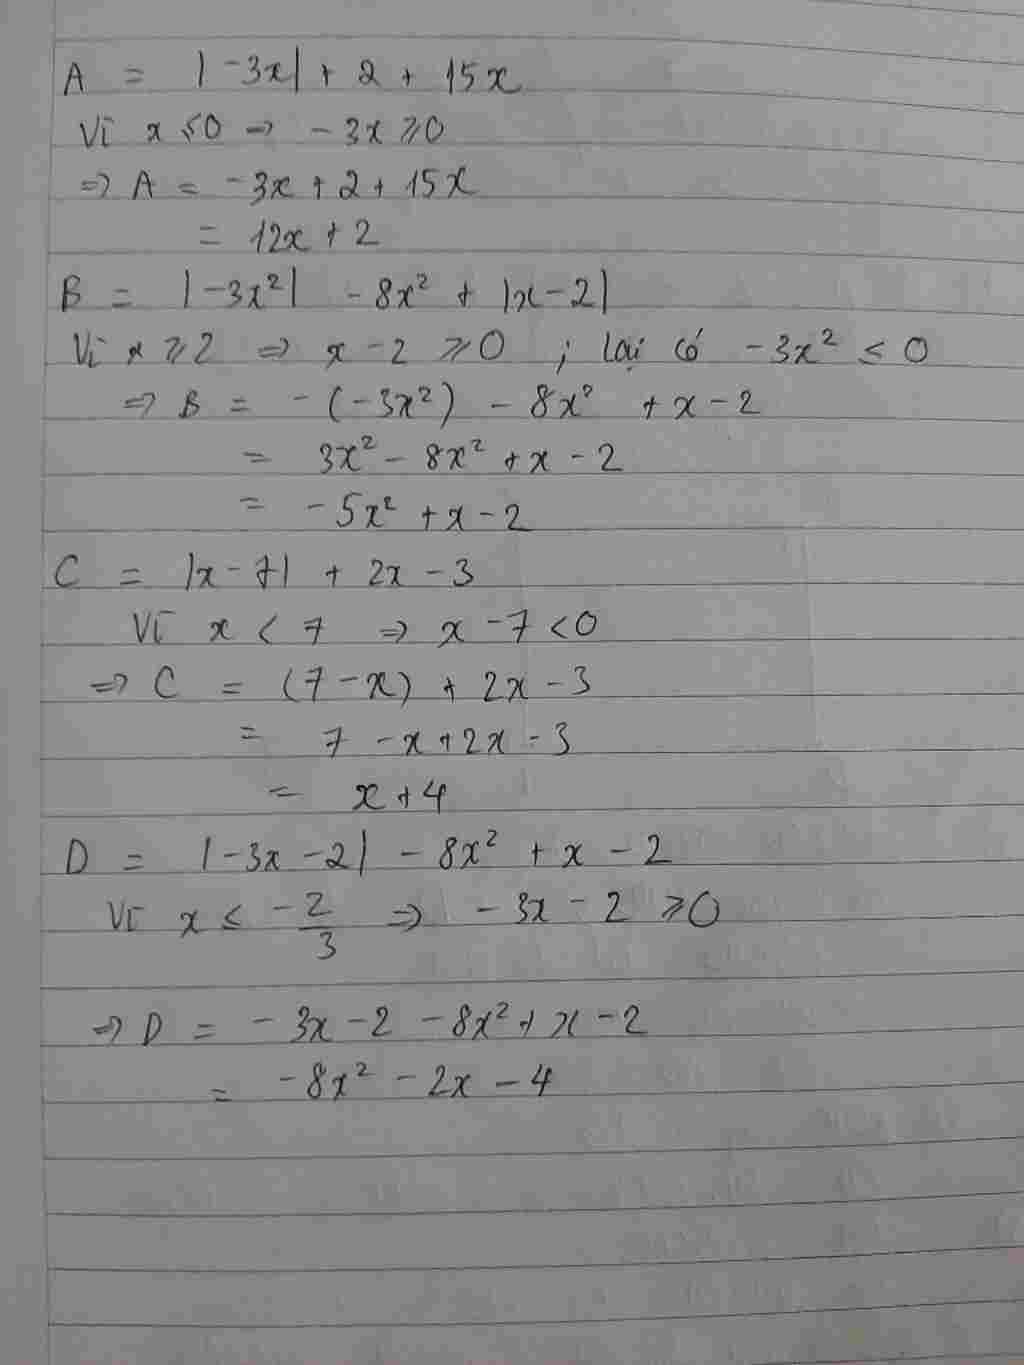 A = |-3x| + 2 + 15x
Vì x ≤ 0 => -3x ≥ 0
=> A = -3x + 2 + 15x
= 12x + 2
B = |-3x² | - 8x² + |x - 2|
Vì x ≥ 2 => x - 2 ≥ 0 ; lại có -3x² ≤ 0
=> B = -(-3x²) - 8x² + x - 2
= 3x² - 8x² + x - 2
= -5x² + x - 2
C = |x - 7| + 2x - 3
Vì x < 7 => x - 7 < 0
=> C = (7 - x) + 2x - 3
= 7 - x + 2x - 3
= x + 4
D = |-3x - 2| - 8x² + x - 2
Vì x ≤ -2/3 => -3x - 2 ≥ 0
=> D = -3x - 2 - 8x² + x - 2
= -8x² - 2x - 4